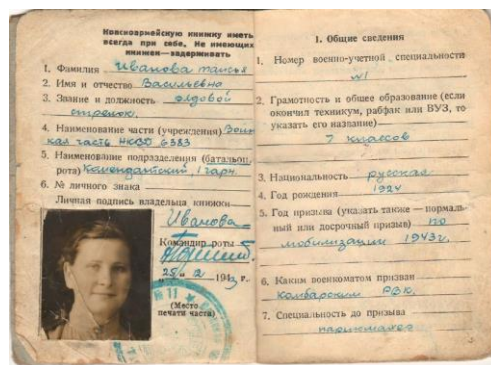 Красноармейскую книжку иметь
всегда при себе. Не имеющих
книжек—задерживать
1. Фамилия Иванова Таисья
2. Имя и отчество Васильевна
3. Звание и должность рядовой
стрелок.
4. Наименование части (учреждения) Воинс
кая часть НКВД 6383
5. Наименование подразделения (батальон,
рота) Комендантский, 1 гарн.
6. № личного знака
Личная подпись владельца книжки
Иванова
Командир роты
„25“ 2 1943 г.
№ 11
(Место
печати части)
I. Общие сведения
1. Номер военно-учетной специальности
№1
2. Грамотность и общее образование (если
окончил техникум, рабфак или ВУЗ, то
указать его название)
7 классов
3. Национальность русская
4. Год рождения 1924
5. Год призыва (указать также — нормаль-
ный или досрочный призыв) по
мобилизации 1943г.
6. Каким военкоматом призван
Камбарским РВК.
7. Специальность до призыва
парикмахер